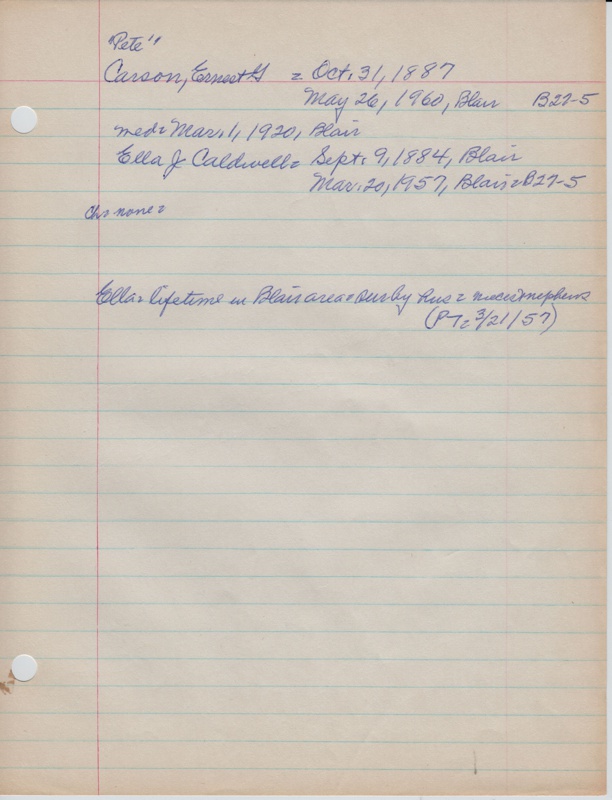 "Pete"
Carson, Ernest G = Oct. 31, 1887
May 26, 1960, Blair B27-5
med = Mar. 1, 1920, Blair
Ella J Caldwell = Sept. 9, 1884, Blair
Mar. 20, 1957, Blair = B27-5
Ch = none =
Ella = lifetime in Blair area = sur by hus = nieces & nephews
(PT = 3/21/57)